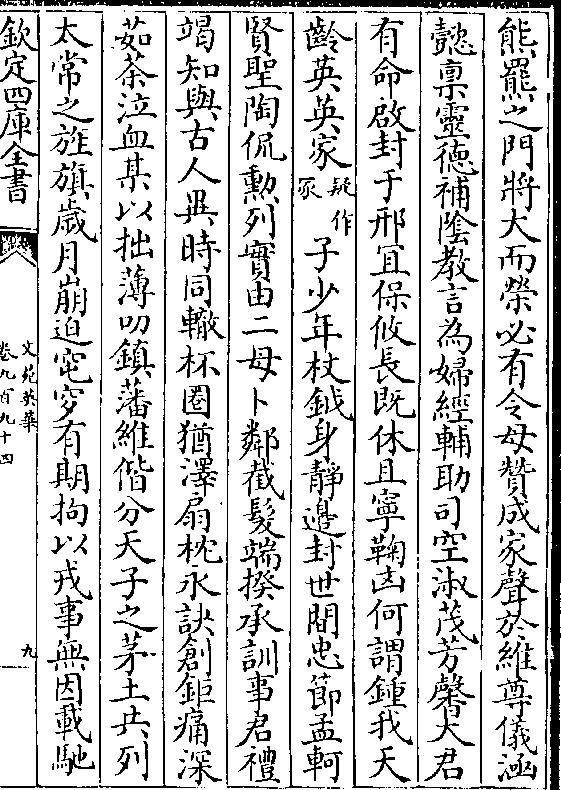 熊羆之門將大而榮必有令母贊成家聲於維尊儀涵
懿禀靈德補陰教言為婦經輔助司空淑茂芳馨大君
有命啟封于邢宜保攸長既休且寧鞠凶何謂鍾我天
齡英英家疑作冢子少年杖鉞身静邊封世闡忠節孟軻
賢聖陶侃勲列實由二母卜鄰截髮端揆承訓事君禮
竭知與古人異時同轍杯圈猶澤扇枕永訣創鉅痛深
茹荼泣血某以拙薄叨鎮藩維偕分天子之茅土共列
太常之旌旗歲月崩迫窀穸有期拘以戎事無因載馳
欽定四庫全書
文苑英華
卷九百九十四
九